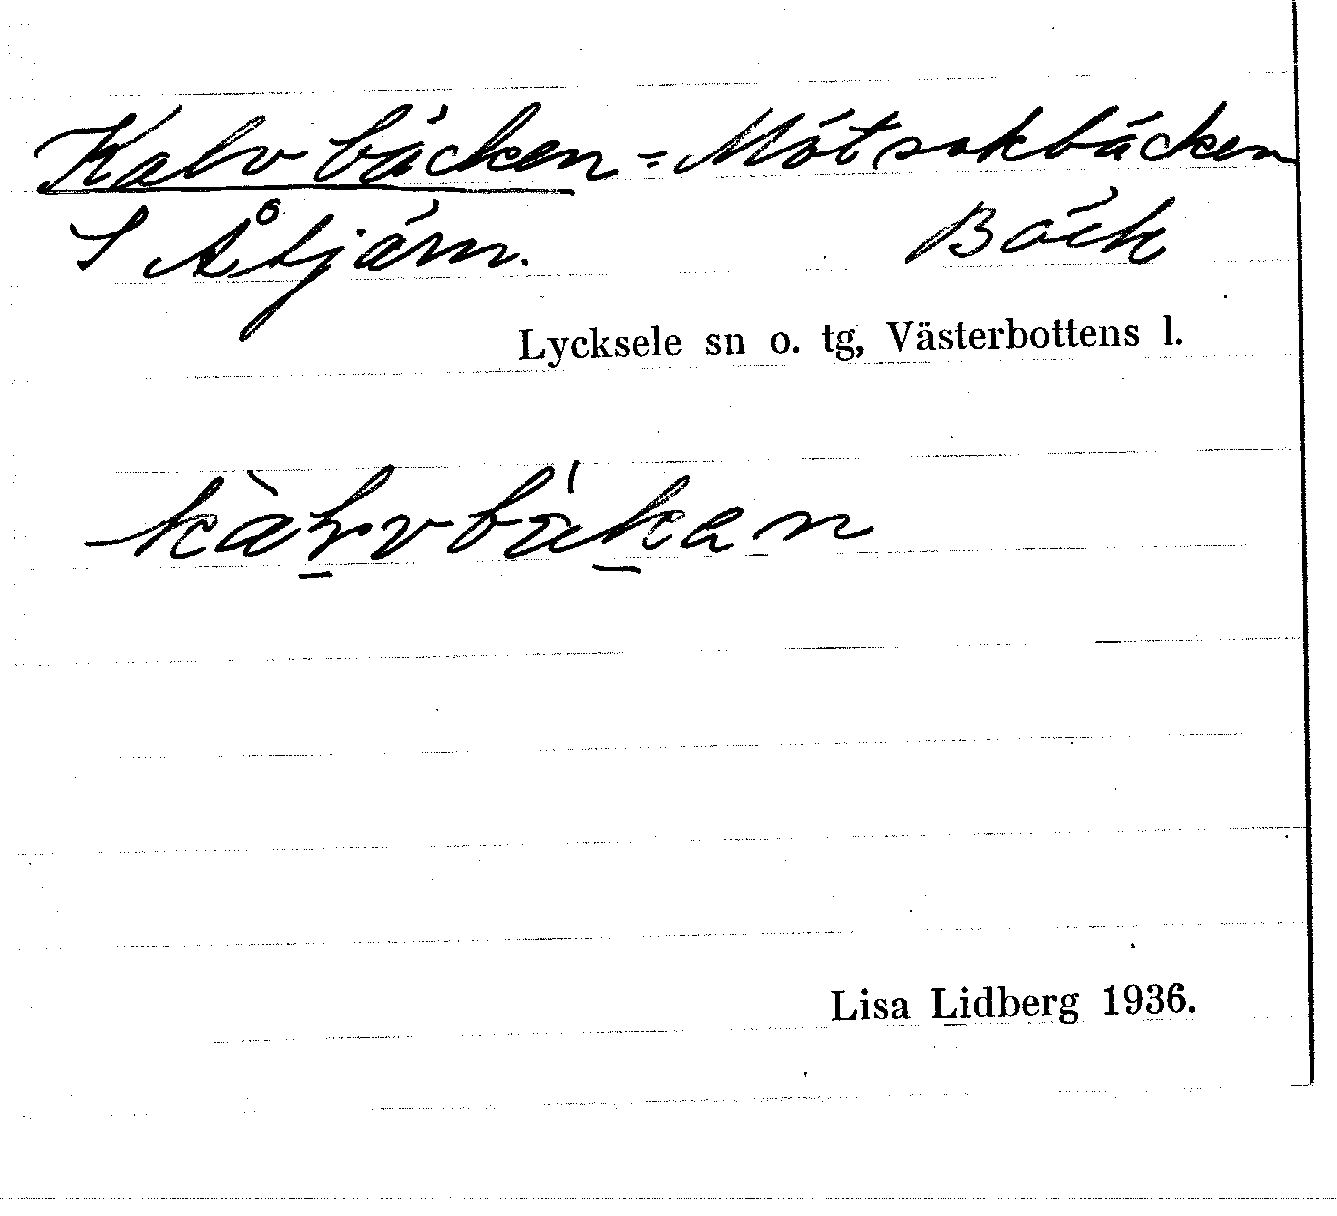 Kalvbäcken = Mötsokbäcken
S Åtjärn. Bäck
Lycksele sn o. tg, Västerbottens l.
Lisa Lidberg 1936.